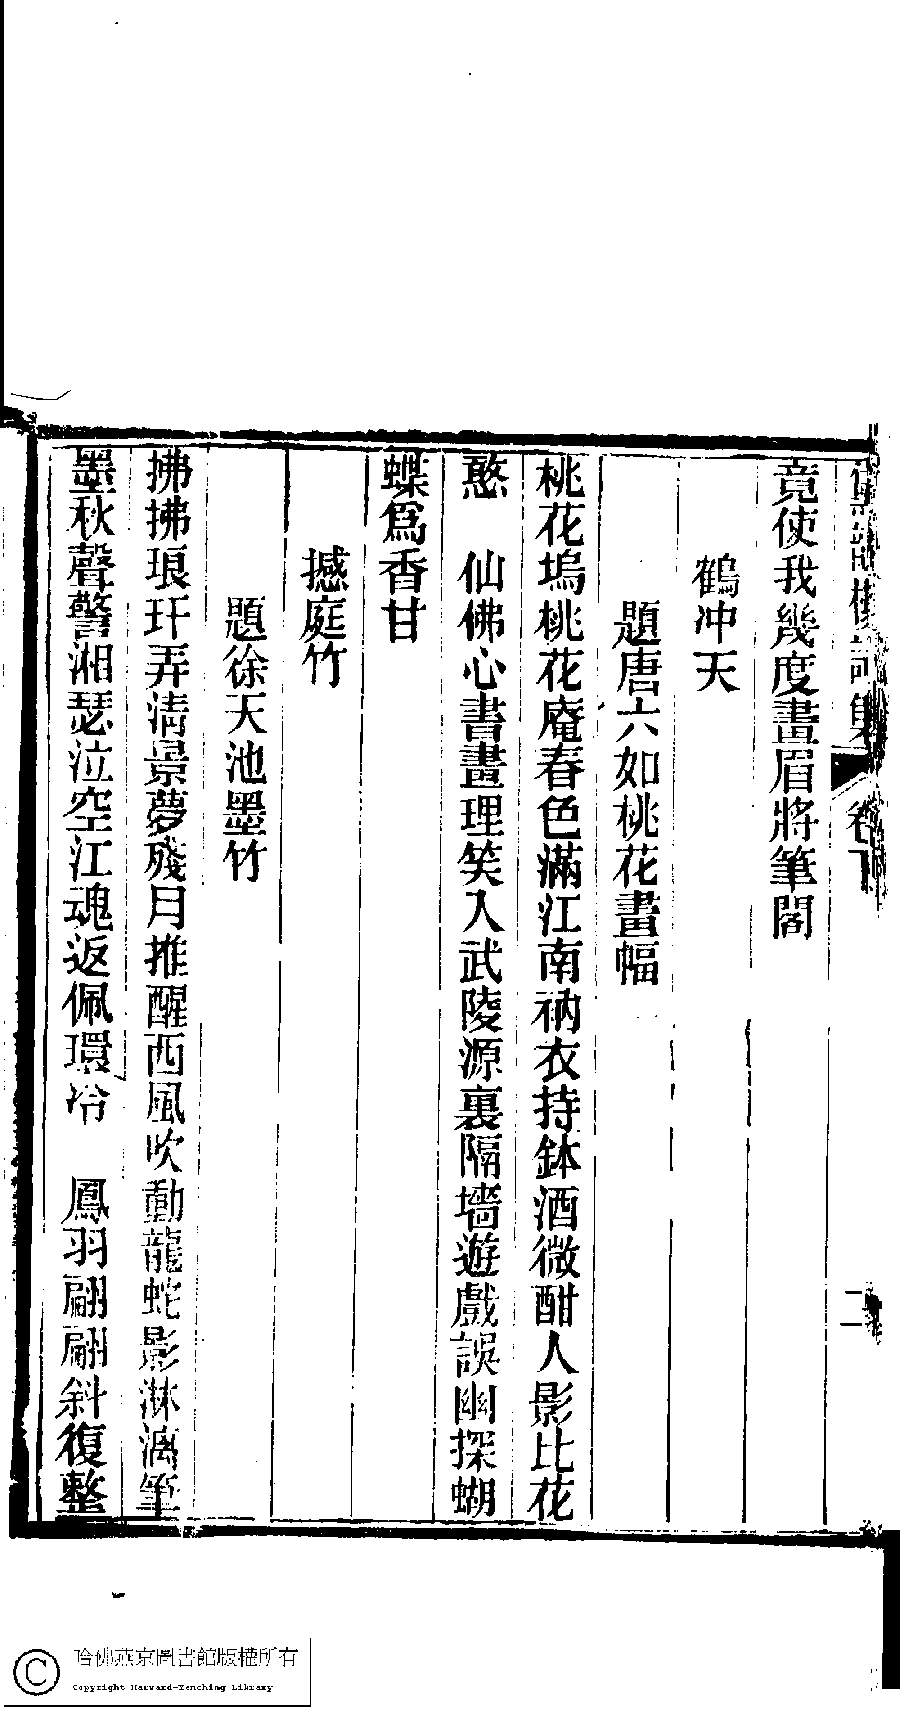 樓詩集 卷下 二
竟使我幾度畫眉將筆閣
鶴冲天
題唐六如桃花畫幅
桃花塢桃花庵春色滿江南衲衣持鉢酒微酣人影比花
憨　仙佛心書畫理笑入武陵源裏隔墻遊戲誤幽探蝴
蝶爲香甘
撼庭竹
題徐天池墨竹
拂拂琅玕弄清景夢殘月推醒西風吹動龍蛇影淋漓筆
墨秋聲警湘瑟泣空江魂返佩環冷　鳳羽翩翩斜復整
哈佛燕京圖書館版權所有
Copyright Harvard-Yenching Library